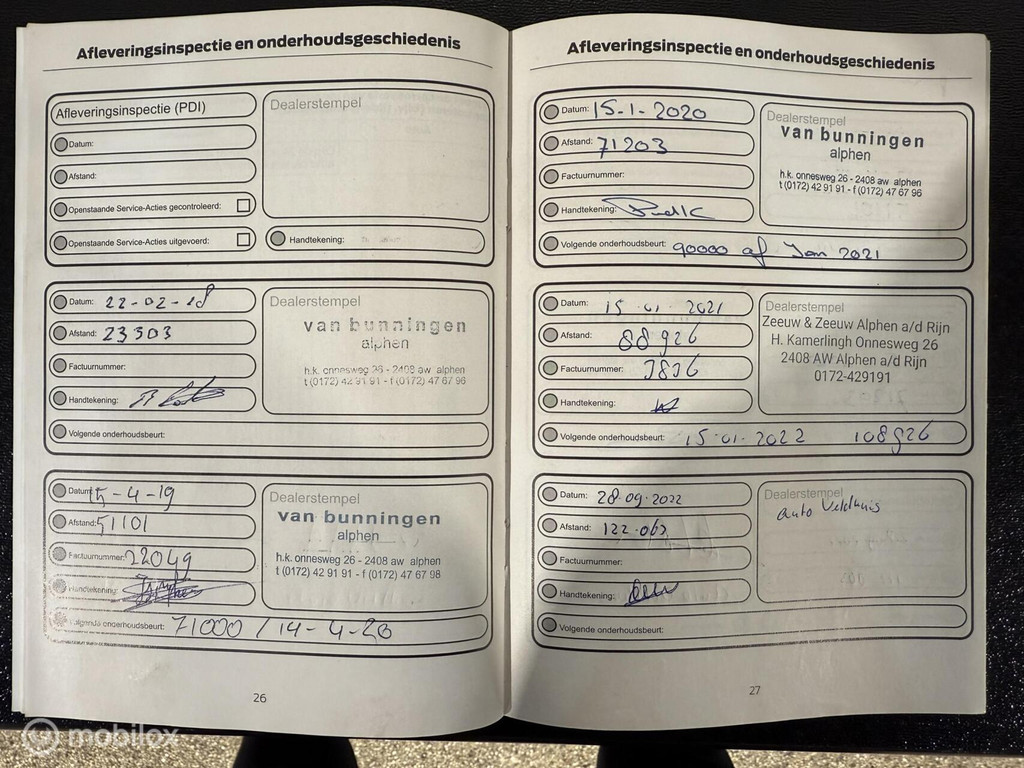 Afleveringsinspectie en onderhoudsgeschiedenis
Afleveringsinspectie (PDI)
Datum:
Afstand:
Openstaande Service-Acties gecontroleerd:
Openstaande Service-Acties uitgevoerd:
Dealerstempel
Handtekening:
Datum: 22-02-18
Afstand: 23303
Factuurnummer:
Handtekening:
Dealerstempel
van bunningen
alphen
h.k. onnesweg 26 - 2408 aw alphen
t (0172) 42 91 91 - f (0172) 47 67 96
Volgende onderhoudsbeurt:
Datum: 15-4-19
Afstand: 51101
Factuurnummer: 22049
Handtekening:
Dealerstempel
van bunningen
alphen
h.k. onnesweg 26 - 2408 aw alphen
t (0172) 42 91 91 - f (0172) 47 67 98
Volgende onderhoudsbeurt: 71000 / 14-4-20
26
Afleveringsinspectie en onderhoudsgeschiedenis
Datum: 15-1-2020
Afstand: 71203
Factuurnummer:
Handtekening:
Dealerstempel
van bunningen
alphen
h.k. onnesweg 26 - 2408 aw alphen
t (0172) 42 91 91 - f (0172) 47 67 96
Volgende onderhoudsbeurt: 90000 of Jan 2021
Datum: 15 01 2021
Afstand: 88926
Factuurnummer:
Handtekening:
Dealerstempel
Zeeuw & Zeeuw Alphen a/d Rijn
H. Kamerlingh Onnesweg 26
2408 AW Alphen a/d Rijn
0172-429191
Volgende onderhoudsbeurt: 15-01-2022 108926
Datum: 28-09-2022
Afstand: 122.063
Factuurnummer:
Handtekening:
Dealerstempel
auto Veldhuis
Volgende onderhoudsbeurt:
27
mobilox